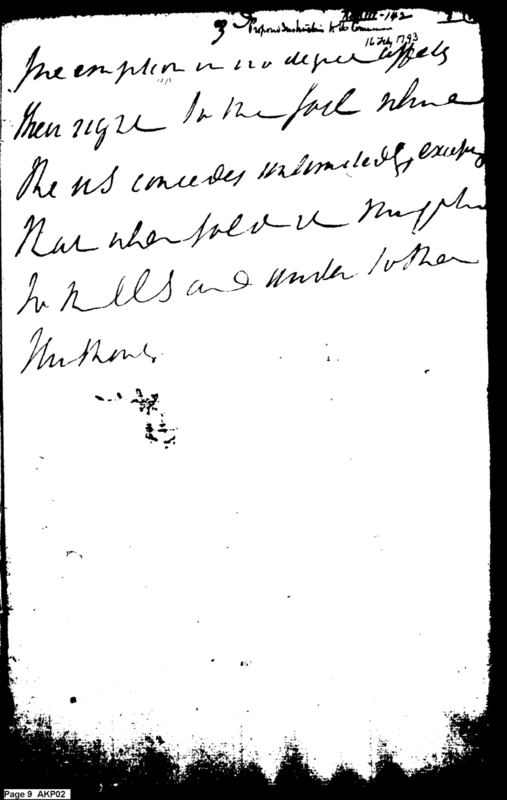 3
Proposed Instructions to the Commrs
16 Feb. 1793
Pre emption in no degree affects
their right to the soil where
the US concedes unlimitedly, excepting
that when sold it
to the U S and under to their
Page 9 AKP02